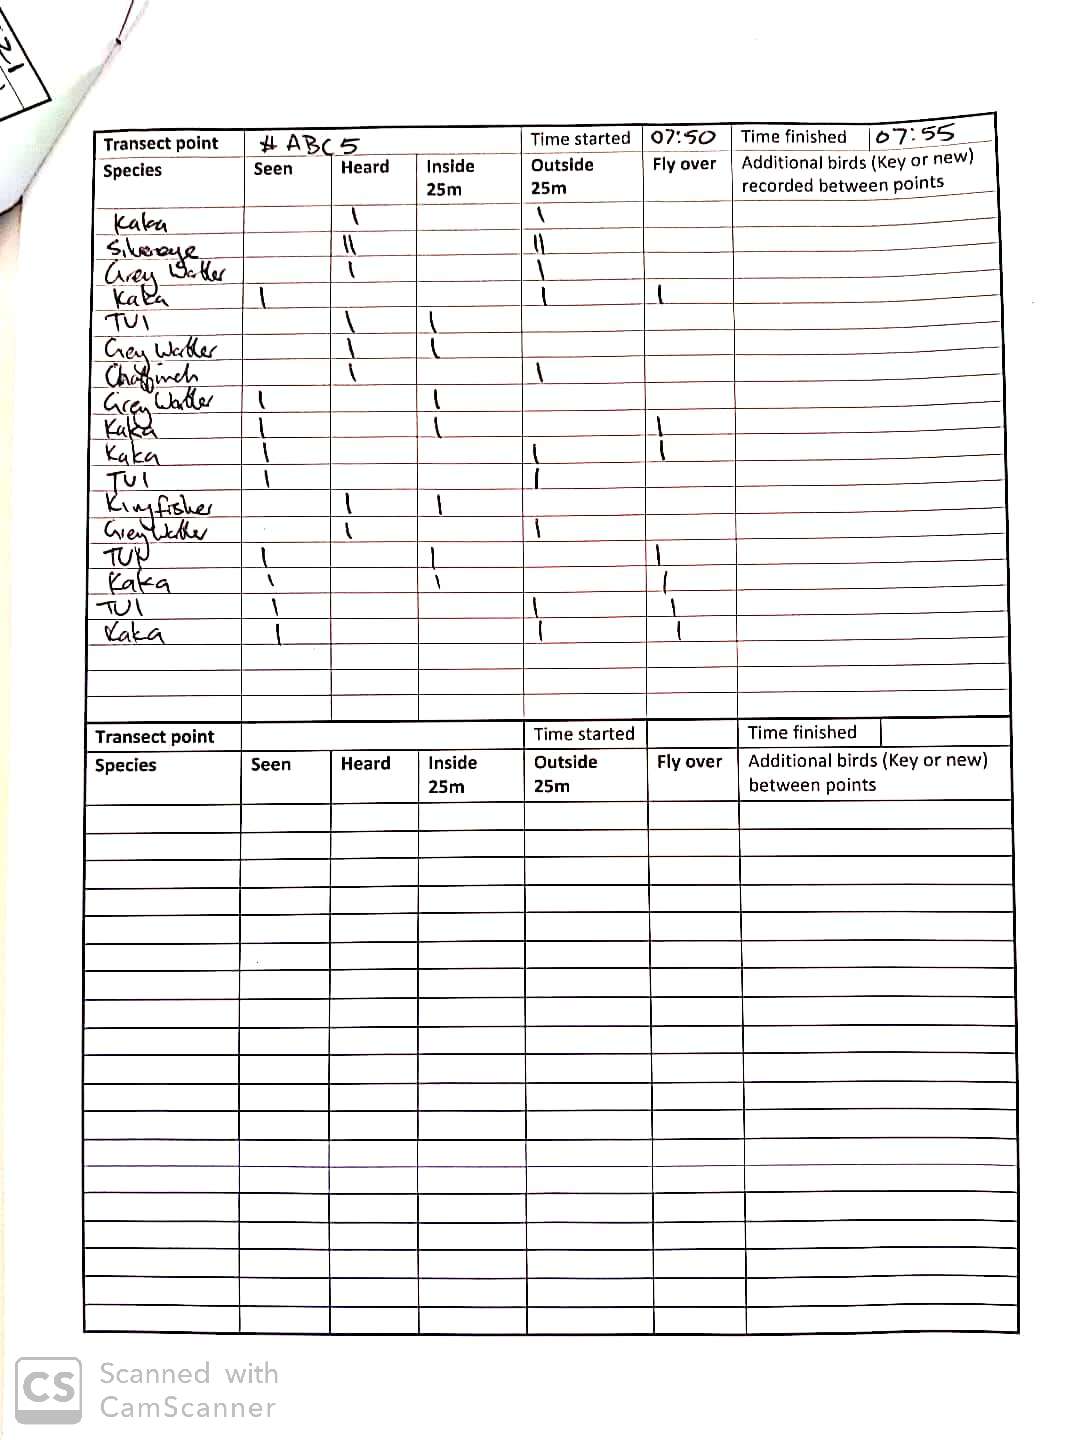 Transect point # ABC5 Time started 07:50 Time finished 07:55
Species Seen Heard Inside 25m Outside 25m Fly over Additional birds (Key or new) recorded between points
Kaka | |
Silvereye || ||
Grey Warbler | |
Kaka | | |
TUI | |
Grey Warbler | |
Chaffinch | |
Grey Warbler | |
Kaka | | |
Kaka | | |
TUI | |
Kingfisher | |
Grey Warbler | |
TUI | | |
Kaka | | |
TUI | | |
Kaka | | |
Transect point Time started Time finished
Species Seen Heard Inside 25m Outside 25m Fly over Additional birds (Key or new) between points
CS Scanned with
CamScanner